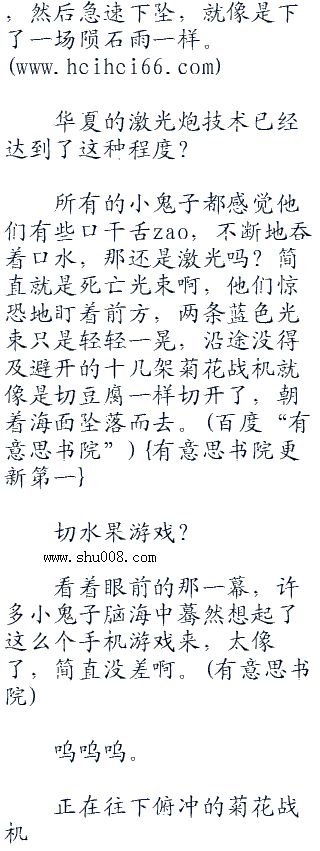 ，然后急速下坠，就像是下
了一场陨石雨一样。
(www.hcihci66.com)
华夏的激光炮技术已经
达到了这种程度？
所有的小鬼子都感觉他
们有些口干舌zao，不断地吞
着口水，那还是激光吗？简
直就是死亡光束啊，他们惊
恐地盯着前方，两条蓝色光
束只是轻轻一晃，沿途没得
及避开的十几架菊花战机就
像是切豆腐一样切开了，朝
着海面坠落而去。(百度“有
意思书院”){有意思书院更
新第一}
切水果游戏？
www.shu008.com
看着眼前的那一幕，许
多小鬼子脑海中蓦然想起了
这么个手机游戏来，太像
了，简直没差啊。(有意思书
院)
呜呜呜。
正在往下俯冲的菊花战
机